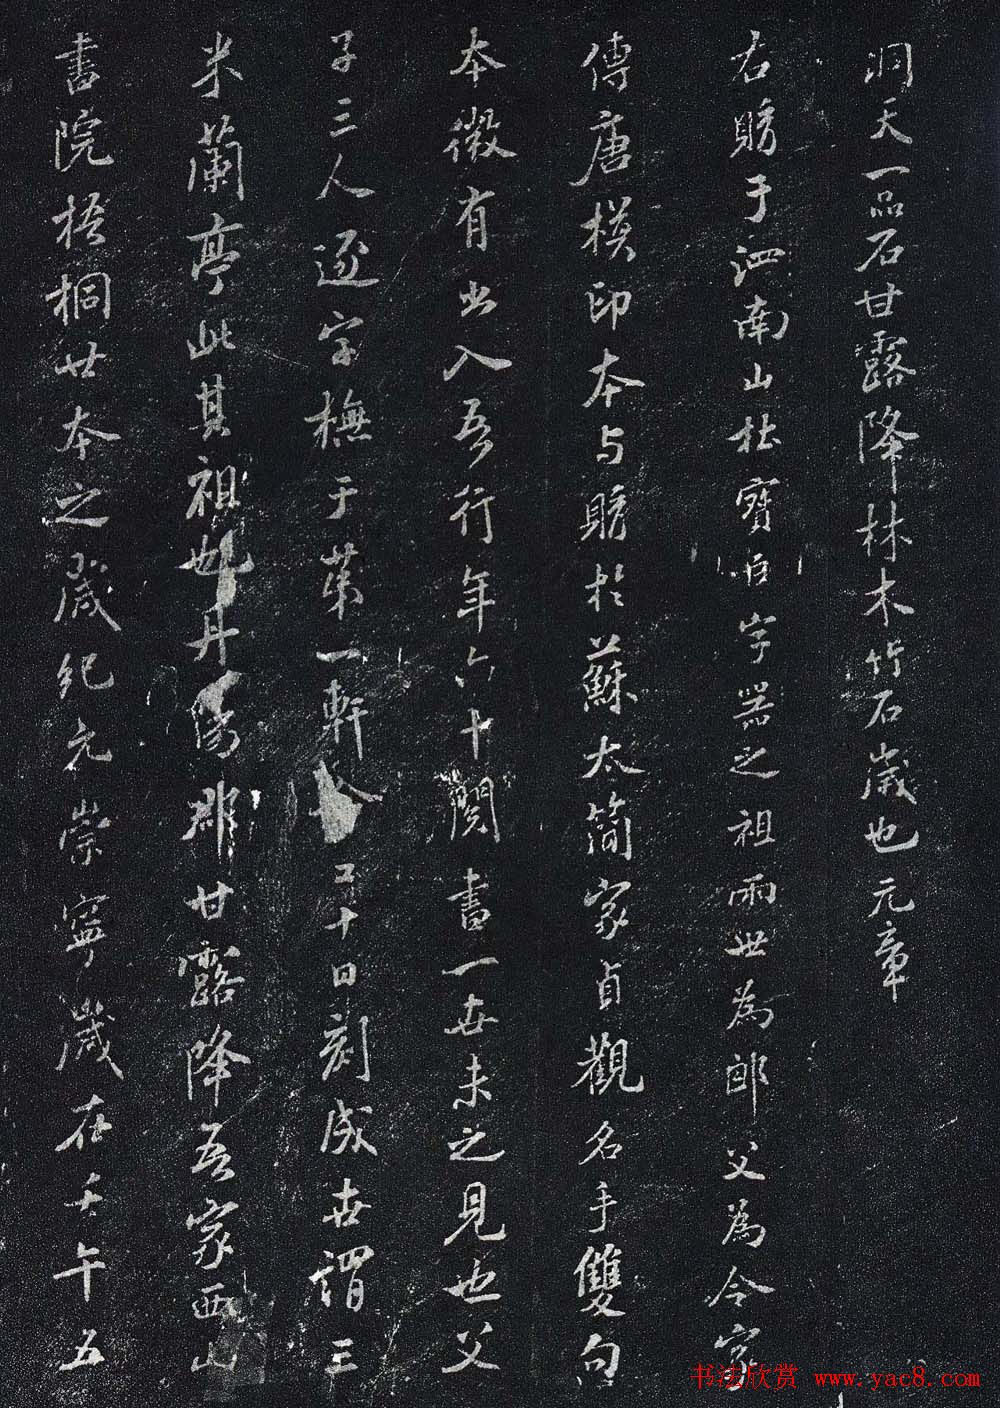 洞天一品石甘露降林木竹石歲也元章
右賜于泗南山杜寶臣字器之祖兩世為郎父為令家
傳唐模印本与賜於蘇太簡家貞觀名手雙勾
本微有出入吾行年六十閱書一世未之見也父
子三人逐字橅于第一軒 工十日刻成世謂三
米蘭亭此其祖也丹陽郡甘露降吾家西山
書院梧桐廿本之歲紀元崇寧歲在壬午五
书法欣赏 www.yac8.com